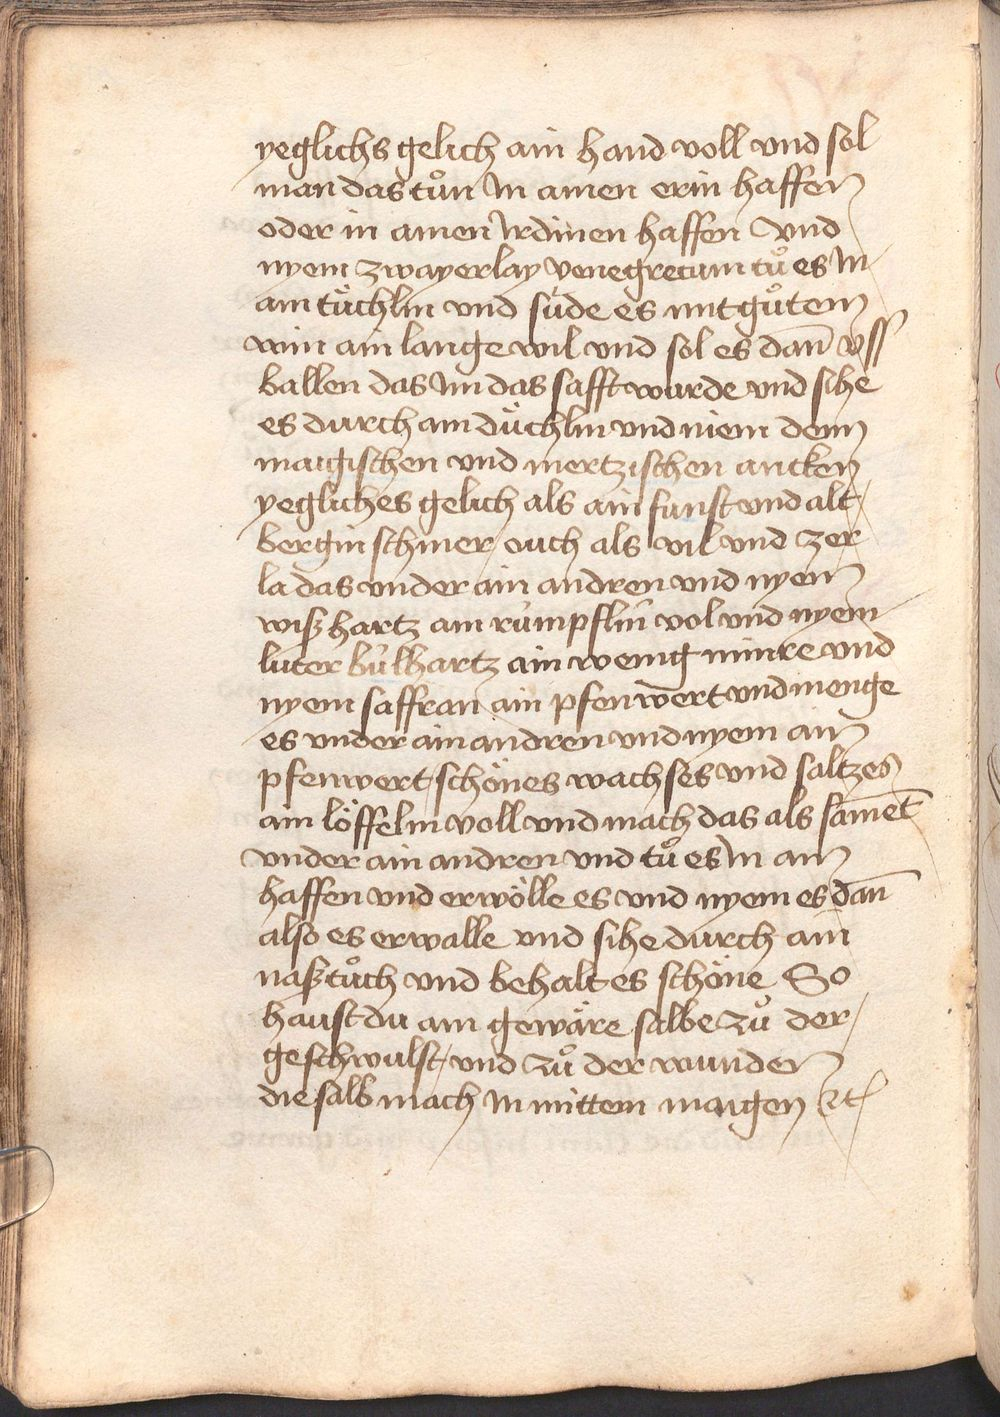 yeglichs gelich ain hand voll vnd sol
man das tůn in ainen erin haffen
oder in ainen irdinen haffen vnd
nyem zwayerlay venegrecum tů es in
ain tůchlin vnd süde es mit gůtem
win ain lange wil vnd sol es dan̄ vss
ballen das im das safft wurde vnd sihe
es durch ain důchlin vnd niem denn
maigischen vnd mertzischen ancken
yegliches gelich als ain funst vnd alt
bergin schmer ouch als vil vnd zer
la das vnder ain andren vnd nyem
wiß hartz ain rümpflin vol vnd nyem
luter bülhartz ain wenig minre vnd
nyem saffran ain pfenwert vnd menge
es vnder ain andren vnd nyem ain
pfenwert schönes wachses vnd saltzes
ain löffelin voll vnd mach das als samet̄
vnder ain andren vnd tů es in ain
haffen vnd erwölle es vnd nyem es dan̄
also es erwalle vnd sihe durch ain
naß tůch vnd behalt es schöne So
haust du ain gewäre salbe zů der
geschwulst vnd zů der wunden
die salb mach in mittem maigen ꝛc